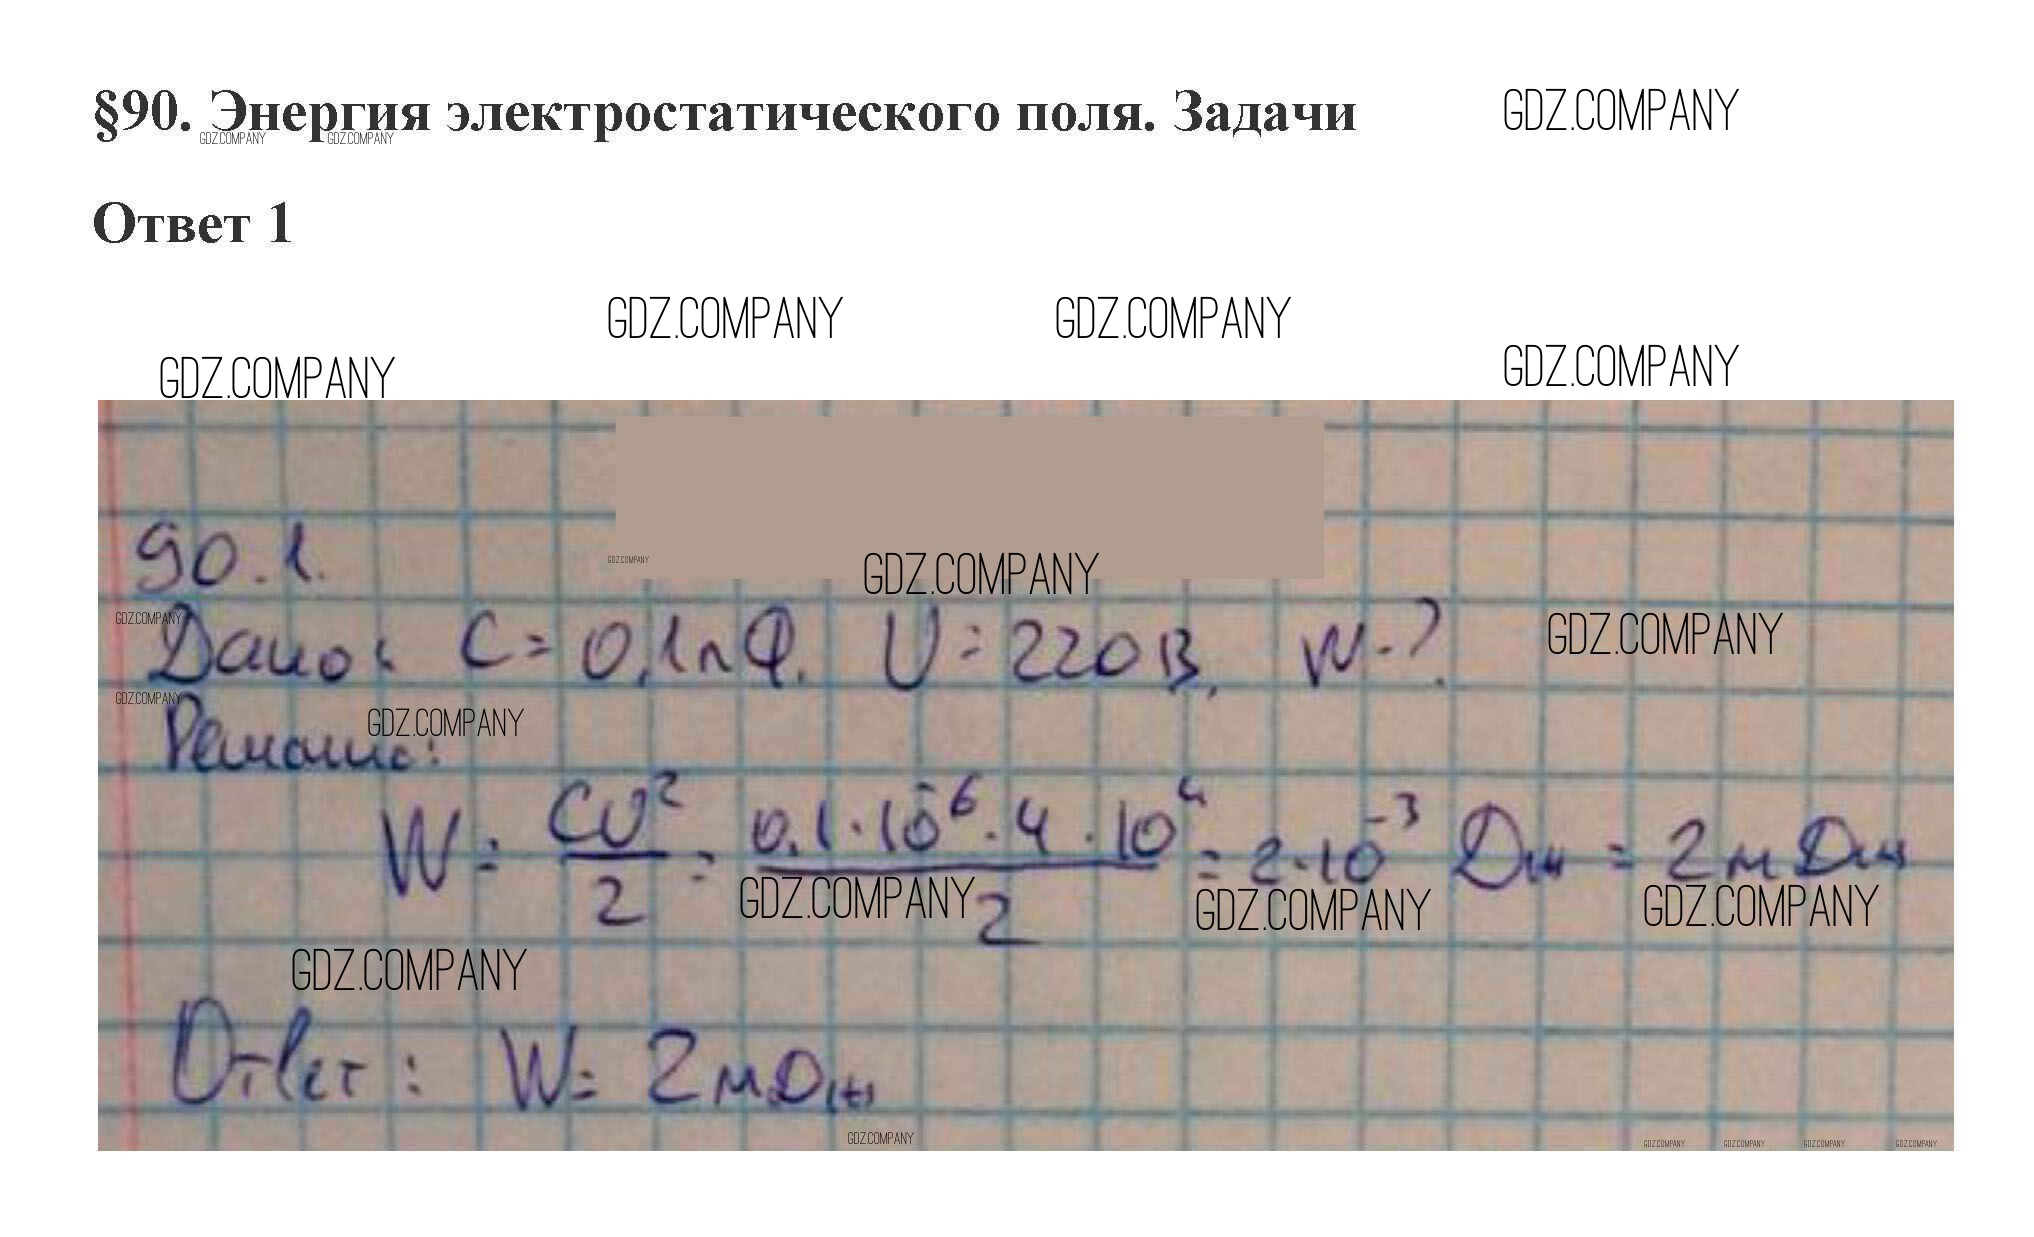 §90. Энергия электростатического поля. Задачи
GDZ.COMPANY
GDZ.COMPANY GDZ.COMPANY
Ответ 1
GDZ.COMPANY GDZ.COMPANY
GDZ.COMPANY
GDZ.COMPANY
90.1.
GDZ.COMPANY
GDZ.COMPANY
GDZ.COMPANY
Дано: C = 0,1 пФ. U = 220 В, W - ?
GDZ.COMPANY
GDZ.COMPANY
GDZ.COMPANY
Решение:
W = CU²/2 = 0,1·10⁻⁶·4·10⁴/2 = 2·10⁻³ Дж = 2 мДж
GDZ.COMPANY GDZ.COMPANY GDZ.COMPANY
GDZ.COMPANY
Ответ: W = 2 мДж
GDZ.COMPANY
GDZ.COMPANY GDZ.COMPANY GDZ.COMPANY GDZ.COMPANY